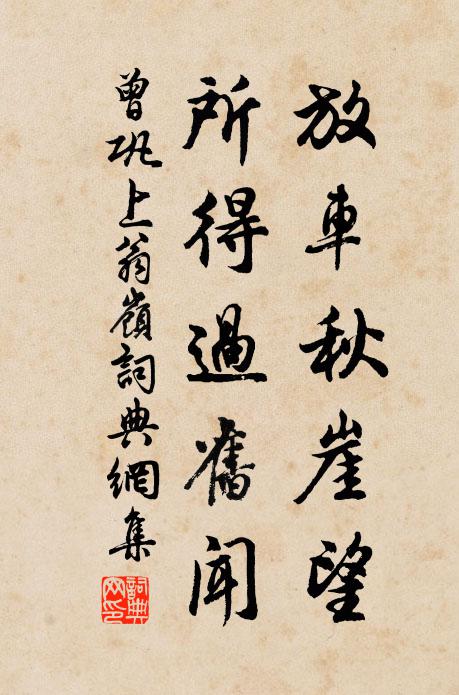 放車秋崖望
所得過舊聞
曾巩上翁嶺詞典網集
詞典網印